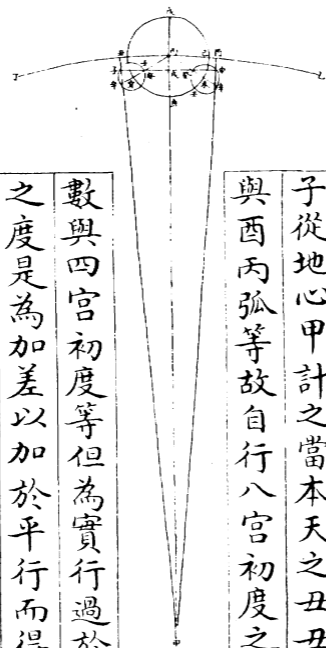 子從地心甲計之當本天之丑丑
與酉丙弧等故自行八宮初度之
數與四宮初度等但為實行過於
之度是為加差以加於平行而得